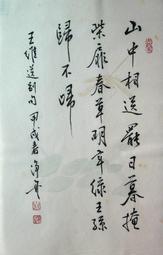 山中相送罷日暮掩
柴扉春草明年綠王孫
歸不歸
王維送別句甲戌春